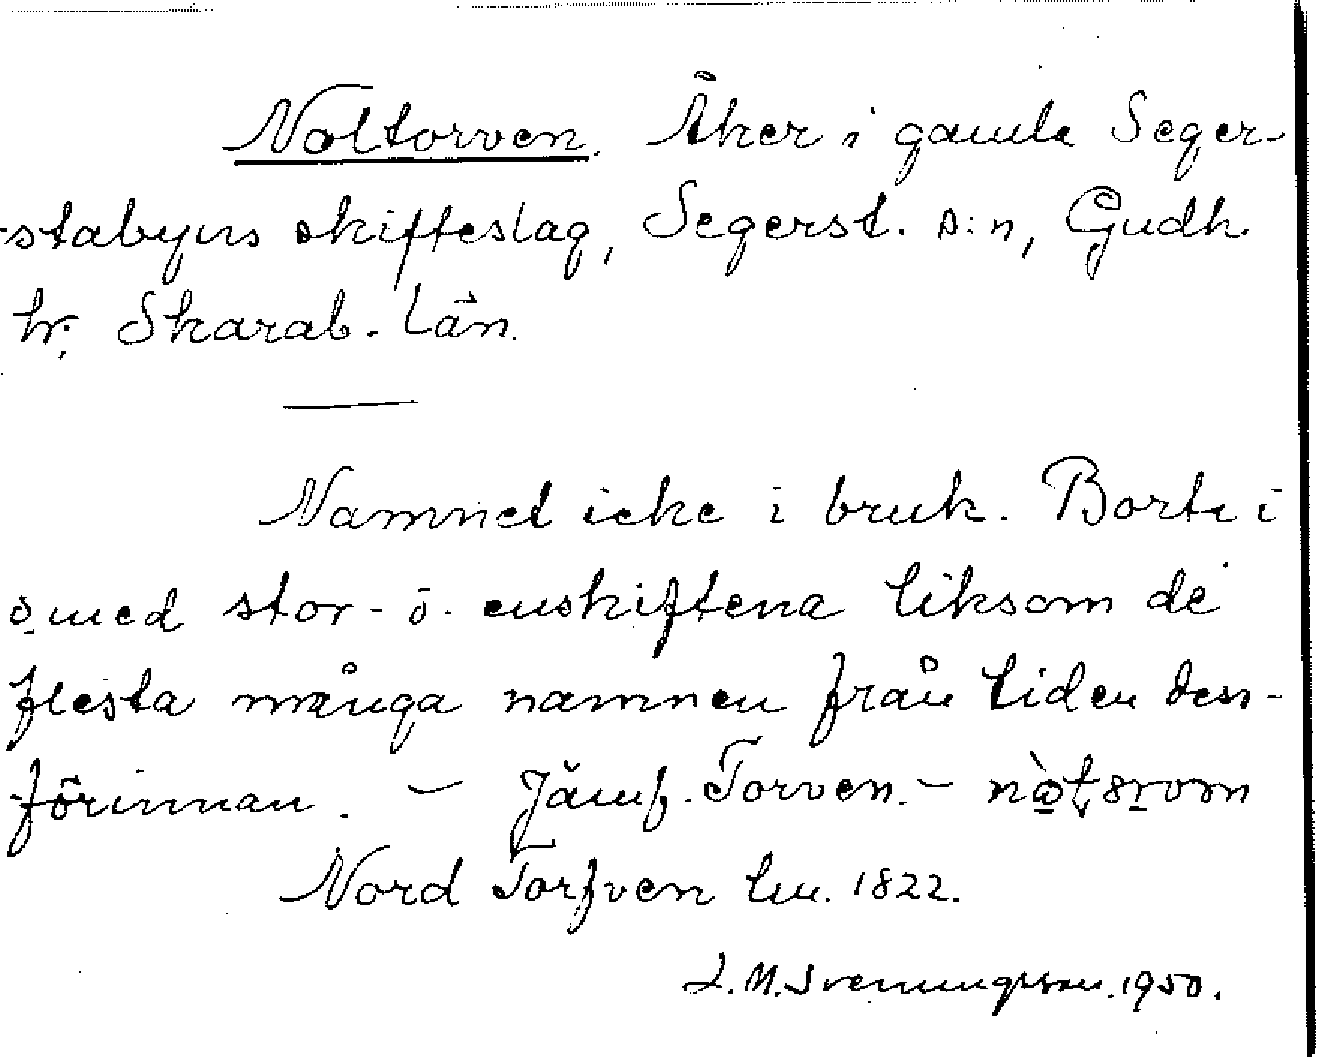 Noltorven. Åker i gamla Seger-
stabyns skifteslag, Segerst. s:n, Gudh.
hr. Skarab. Län.
Namnet icke i bruk. Borta i
o. med stor- o. enskiftena liksom de
flesta många namnen från tiden dess-
förinnan. – Jämf. Torven. –
Nord Torfven Lm. 1822.
L.M. Svenungsson. 1950.